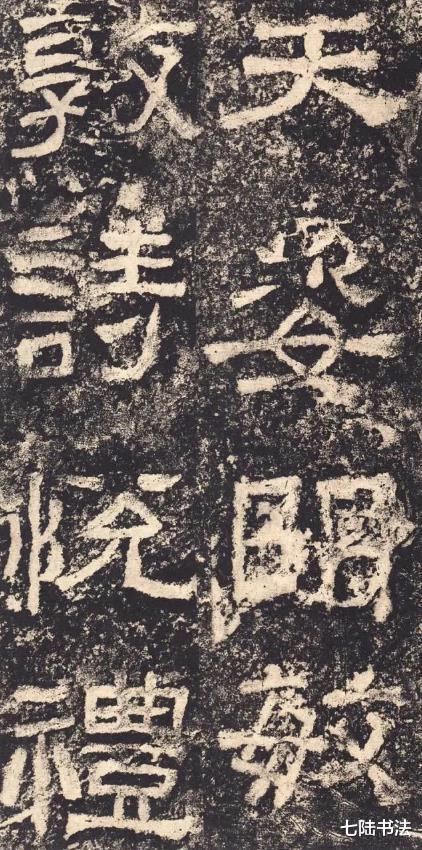 天姿明敏
敦詩悅禮
七陆书法